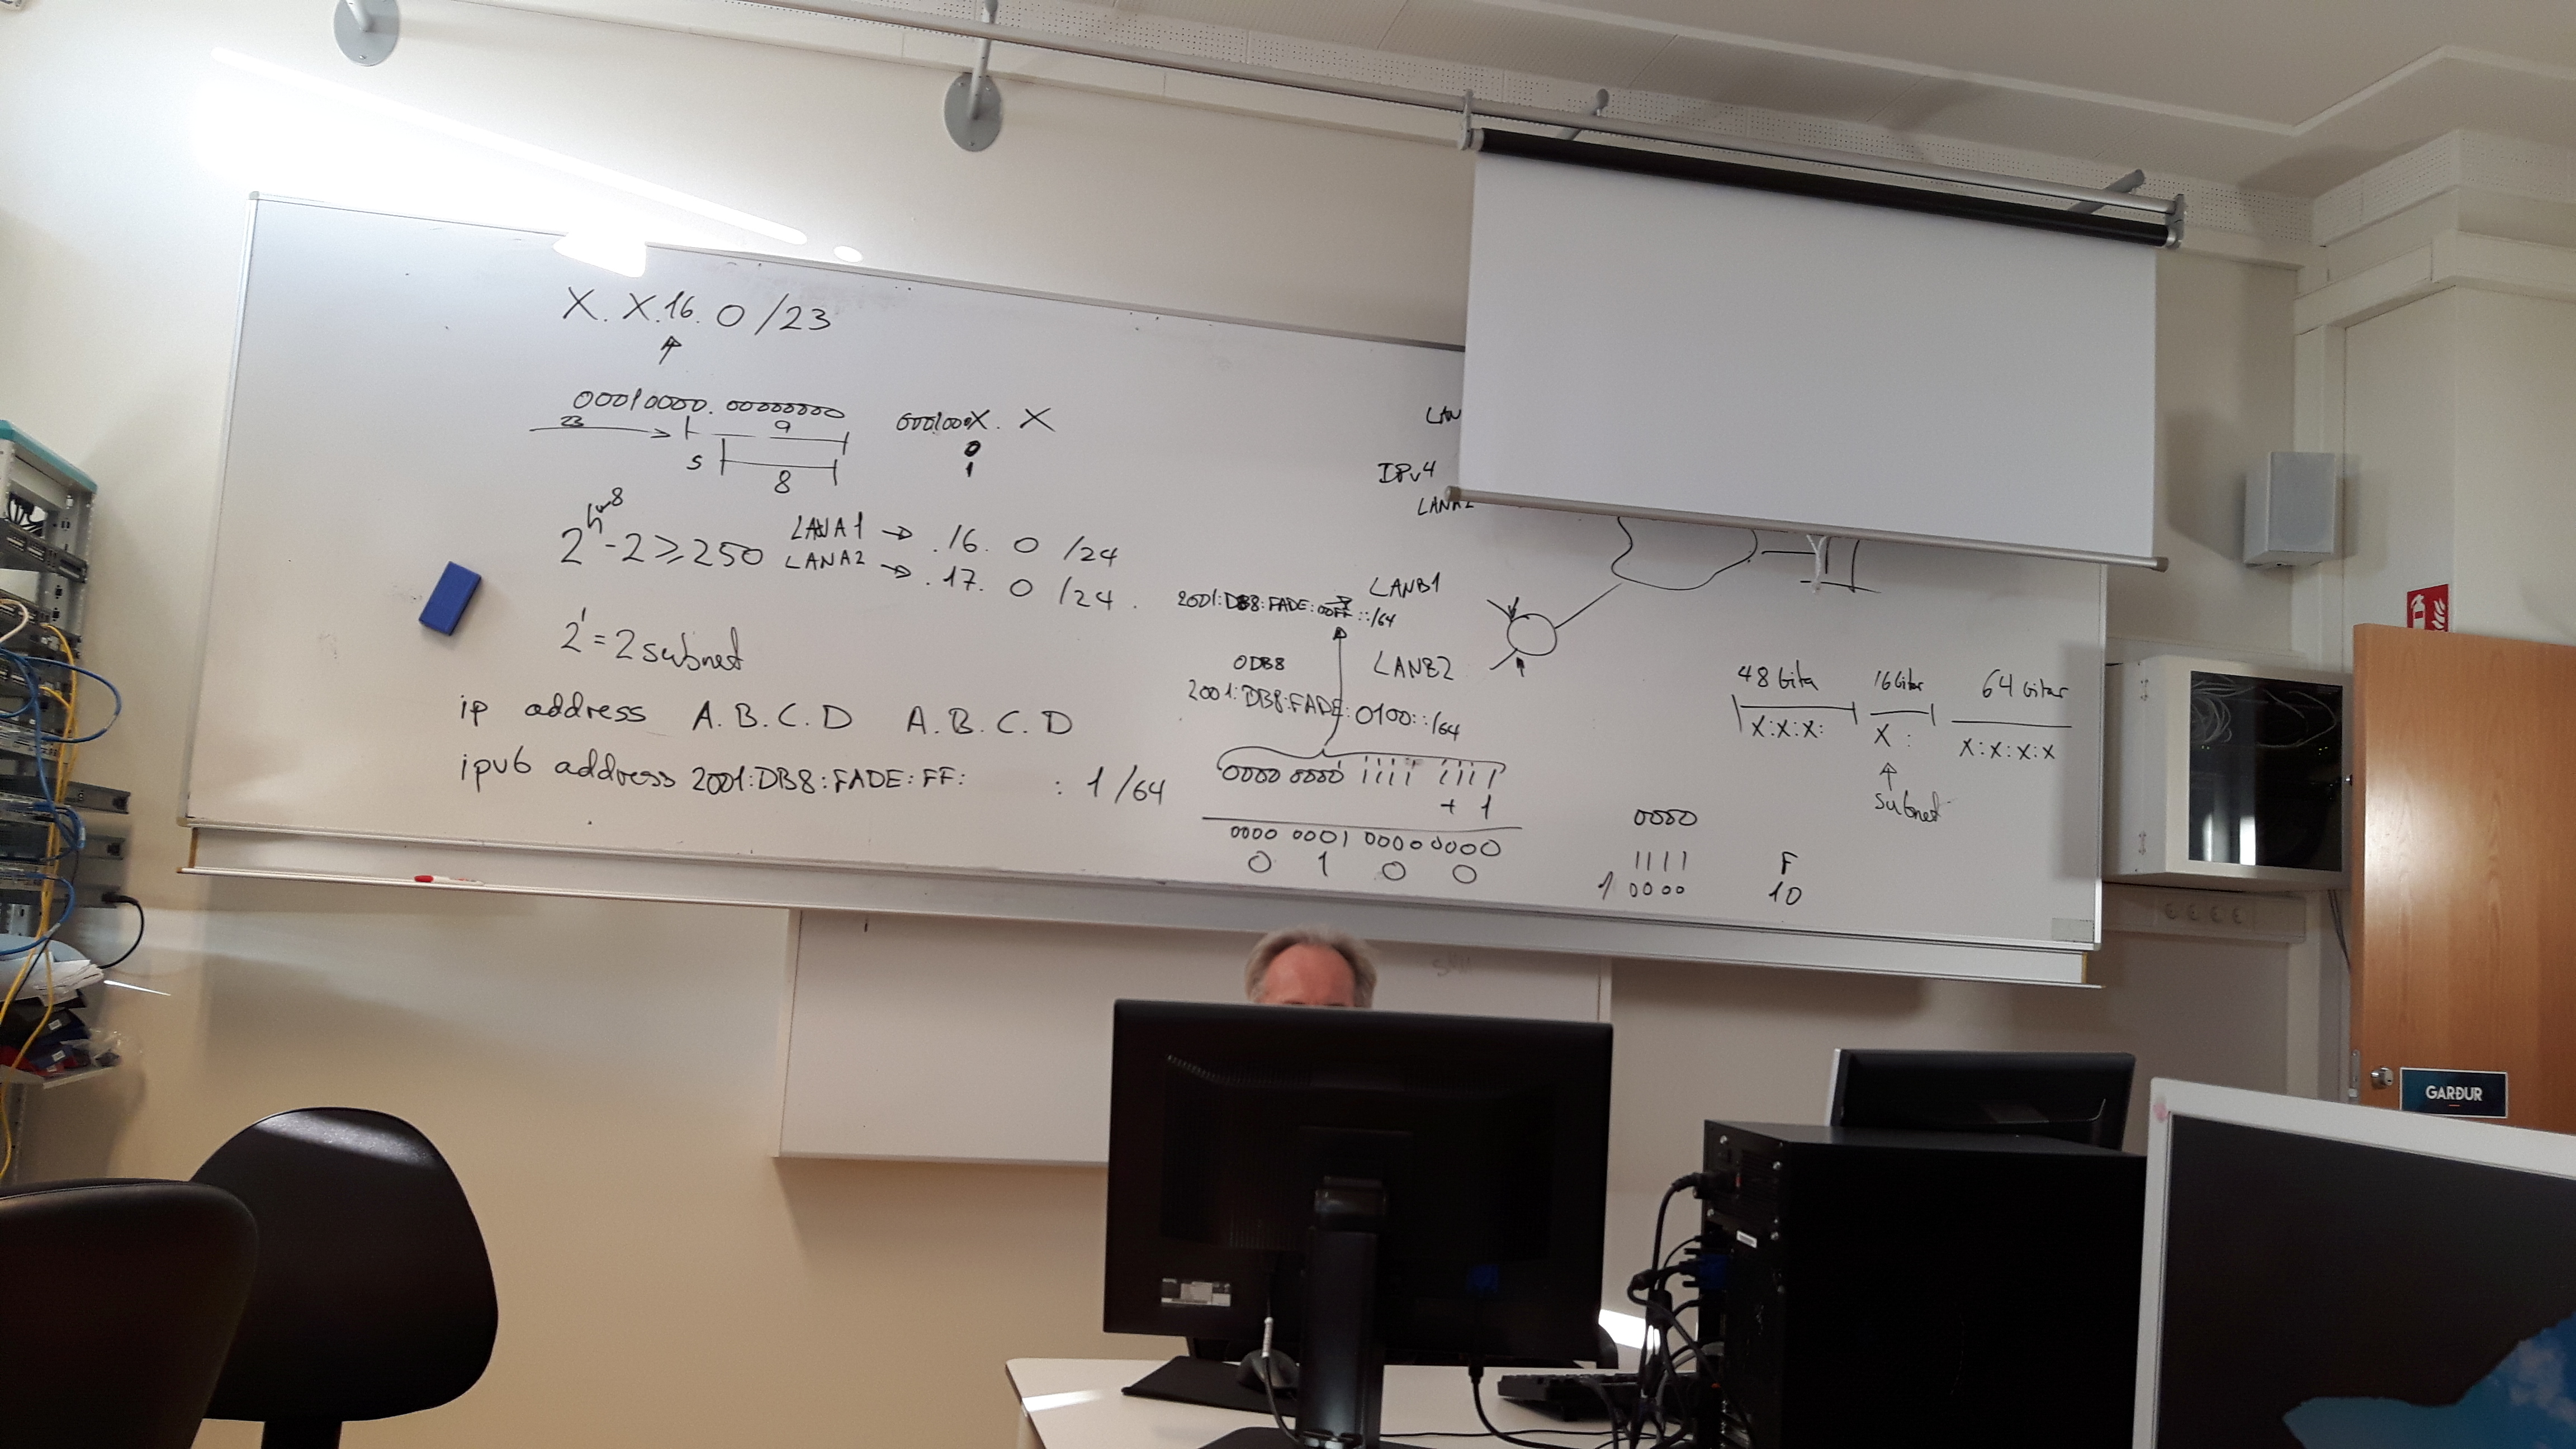 X. X.16. 0 /23
00010000. 00000000
0001000X. X
23
9
0
1
S
8
h=8
2^h - 2 ≥ 250
LANA1 → .16. 0 /24
LANA2 → .17. 0 /24.
2^1 = 2 subnet
ip address A.B.C.D A.B.C.D
ipv6 address 2001:DB8:FADE:FF: :1/64
LAN
IPv4
LANA2
LANB1
2001:DB8:FADE:00FF::/64
0DB8
LANB2
2001:DB8:FADE:0100::/64
0000 0000 1111 1111
+ 1
0000 0001 0000 0000
0 1 0 0
0000
1111 F
1 0000 10
48 bita 16 bitar 64 bitar
X:X:X: X: X:X:X:X
subnet
GARÐUR